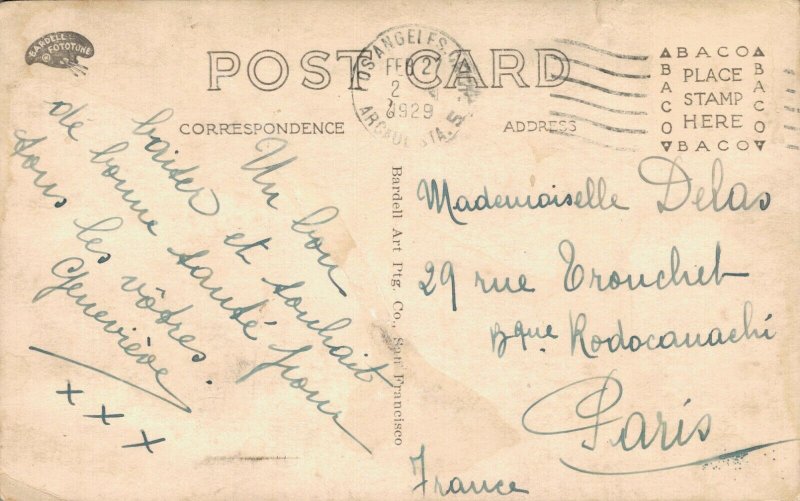 BARDELL
FOTOTONE
POST CARD
CORRESPONDENCE
ADDRESS
LOS ANGELES, CALIF.
FEB 27
2
1929
ARCADE STA. 5
ABACO
BACO
PLACE
STAMP
HERE
BACO
BACO
Un bon
baiser et souhait
de bonne santé pour
tous les vôtres.
Geneviève
+ + +
Bardell Art Ptg. Co., San Francisco
Mademoiselle Delas
29 rue Tronchet
Bque Rodocanachi
Paris
France